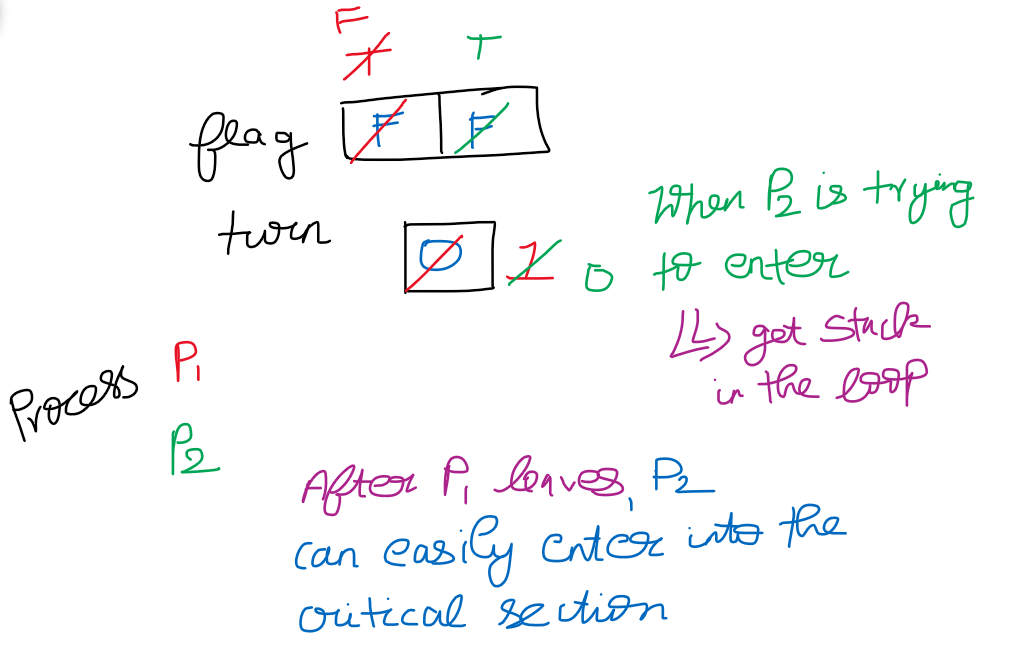 F
T T
flag F F
turn 0 1 0
When P2 is trying
to enter
↳> get stuck
in the loop
Process P1
P2
After P1 leaves, P2
can easily enter into the
critical section